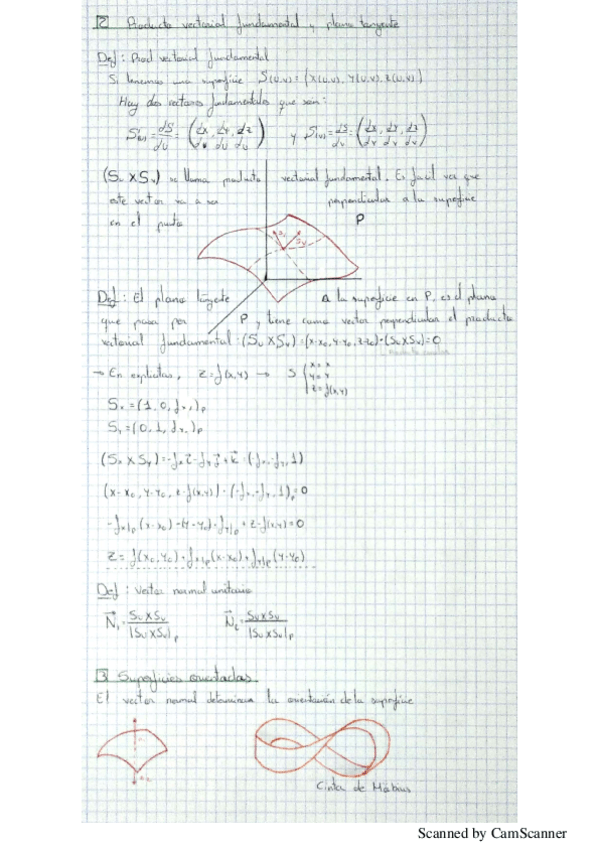 2 Producto vectorial fundamental y plano tangente
Def: Prod vectorial fundamental
Si tenemos una superficie S(u,v) = (x(u,v), y(u,v), z(u,v))
Hay dos vectores fundamentales que son:
S(u) = dS/du = (dx/du, dy/du, dz/du) y S(v) = dS/dv = (dx/dv, dy/dv, dz/dv)
(Su x Sv) se llama producto vectorial fundamental. Es fácil ver que
este vector va a ser perpendicular a la superficie
en el punto P
Def: El plano tangente a la superficie en P, es el plano
que pasa por P y tiene como vector perpendicular el producto
vectorial fundamental: (Su x Sv) = (x-x0, y-y0, z-z0)·(Su x Sv) = 0
→ En explícitas, z = f(x,y) → S { x = x
y = y
z = f(x,y)
Sx = (1, 0, fx)p
Sy = (0, 1, fy)p
(Sx x Sy) = -fx i - fy j + k = (-fx, -fy, 1)
(x-x0, y-y0, z-f(x,y))·(-fx, -fy, 1)p = 0
-fx|p (x-x0) - (y-y0)·fy|p + z - f(x,y) = 0
z = f(x0,y0) + fx|p (x-x0) + fy|p (y-y0)
Def: Vector normal unitario
N1 = Su x Sv / |Su x Sv| p N2 = Su x Sv / |Su x Sv| p
3 Superficies orientadas
El vector normal determina la orientación de la superficie
Cinta de Möbius
Scanned by CamScanner